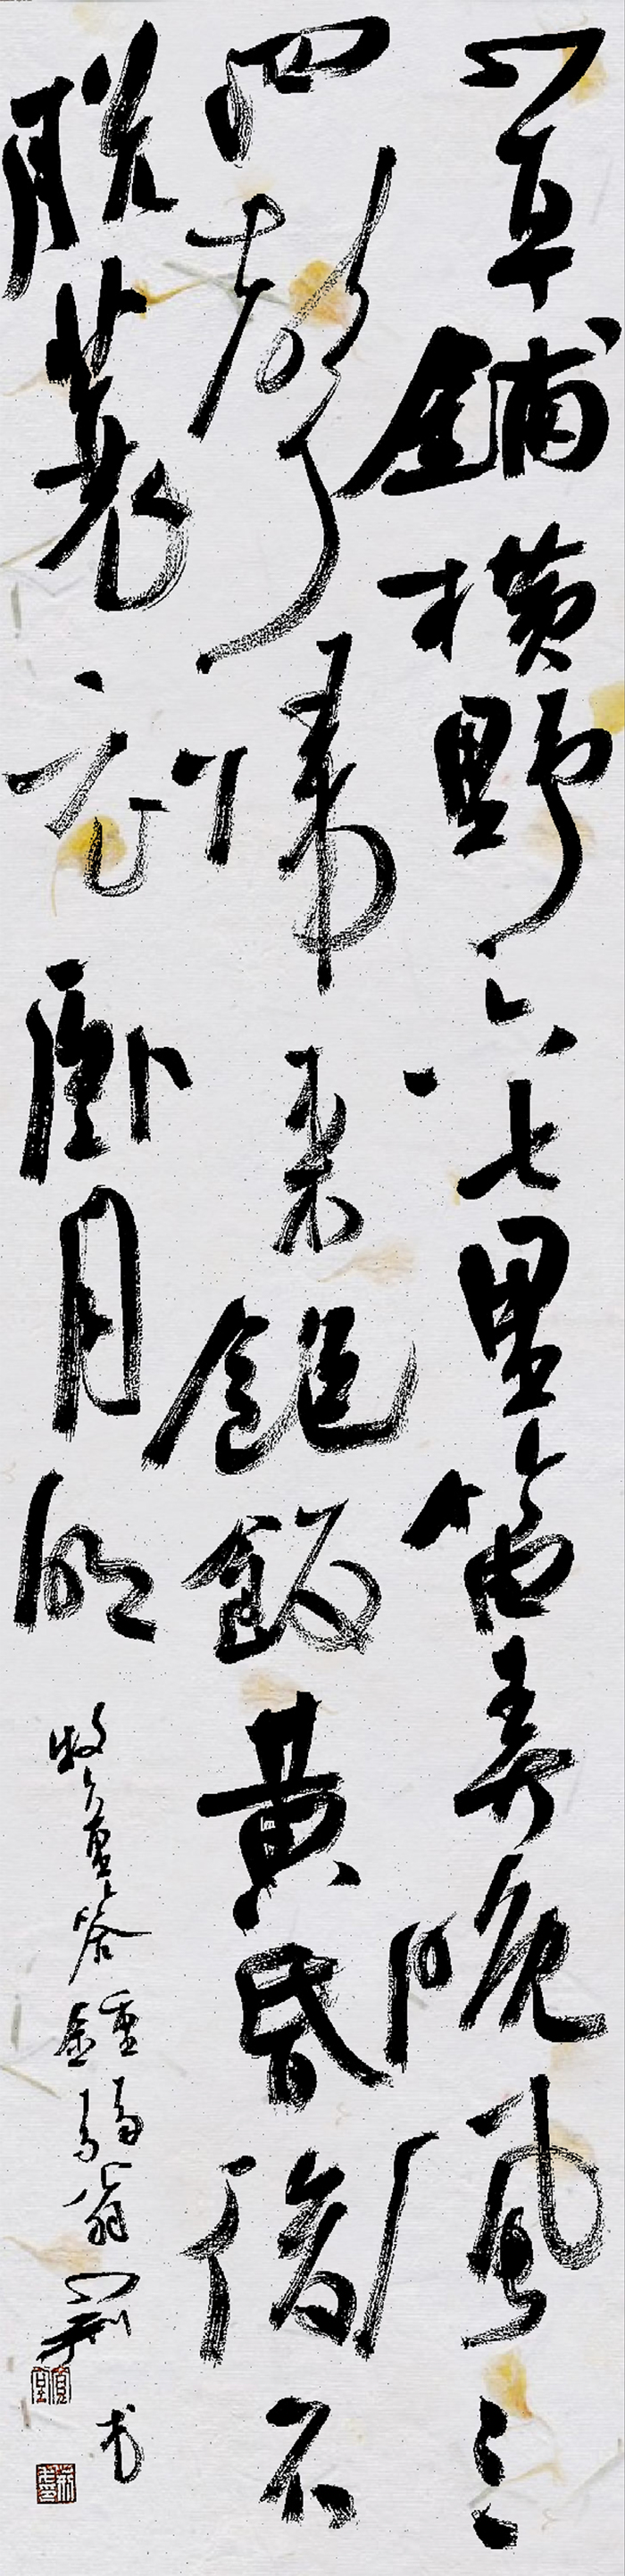 草鋪橫野六七里笛弄晚風三
四聲歸來飽飯黃昏後不
脫蓑衣臥月明
牧童答鍾弱翁